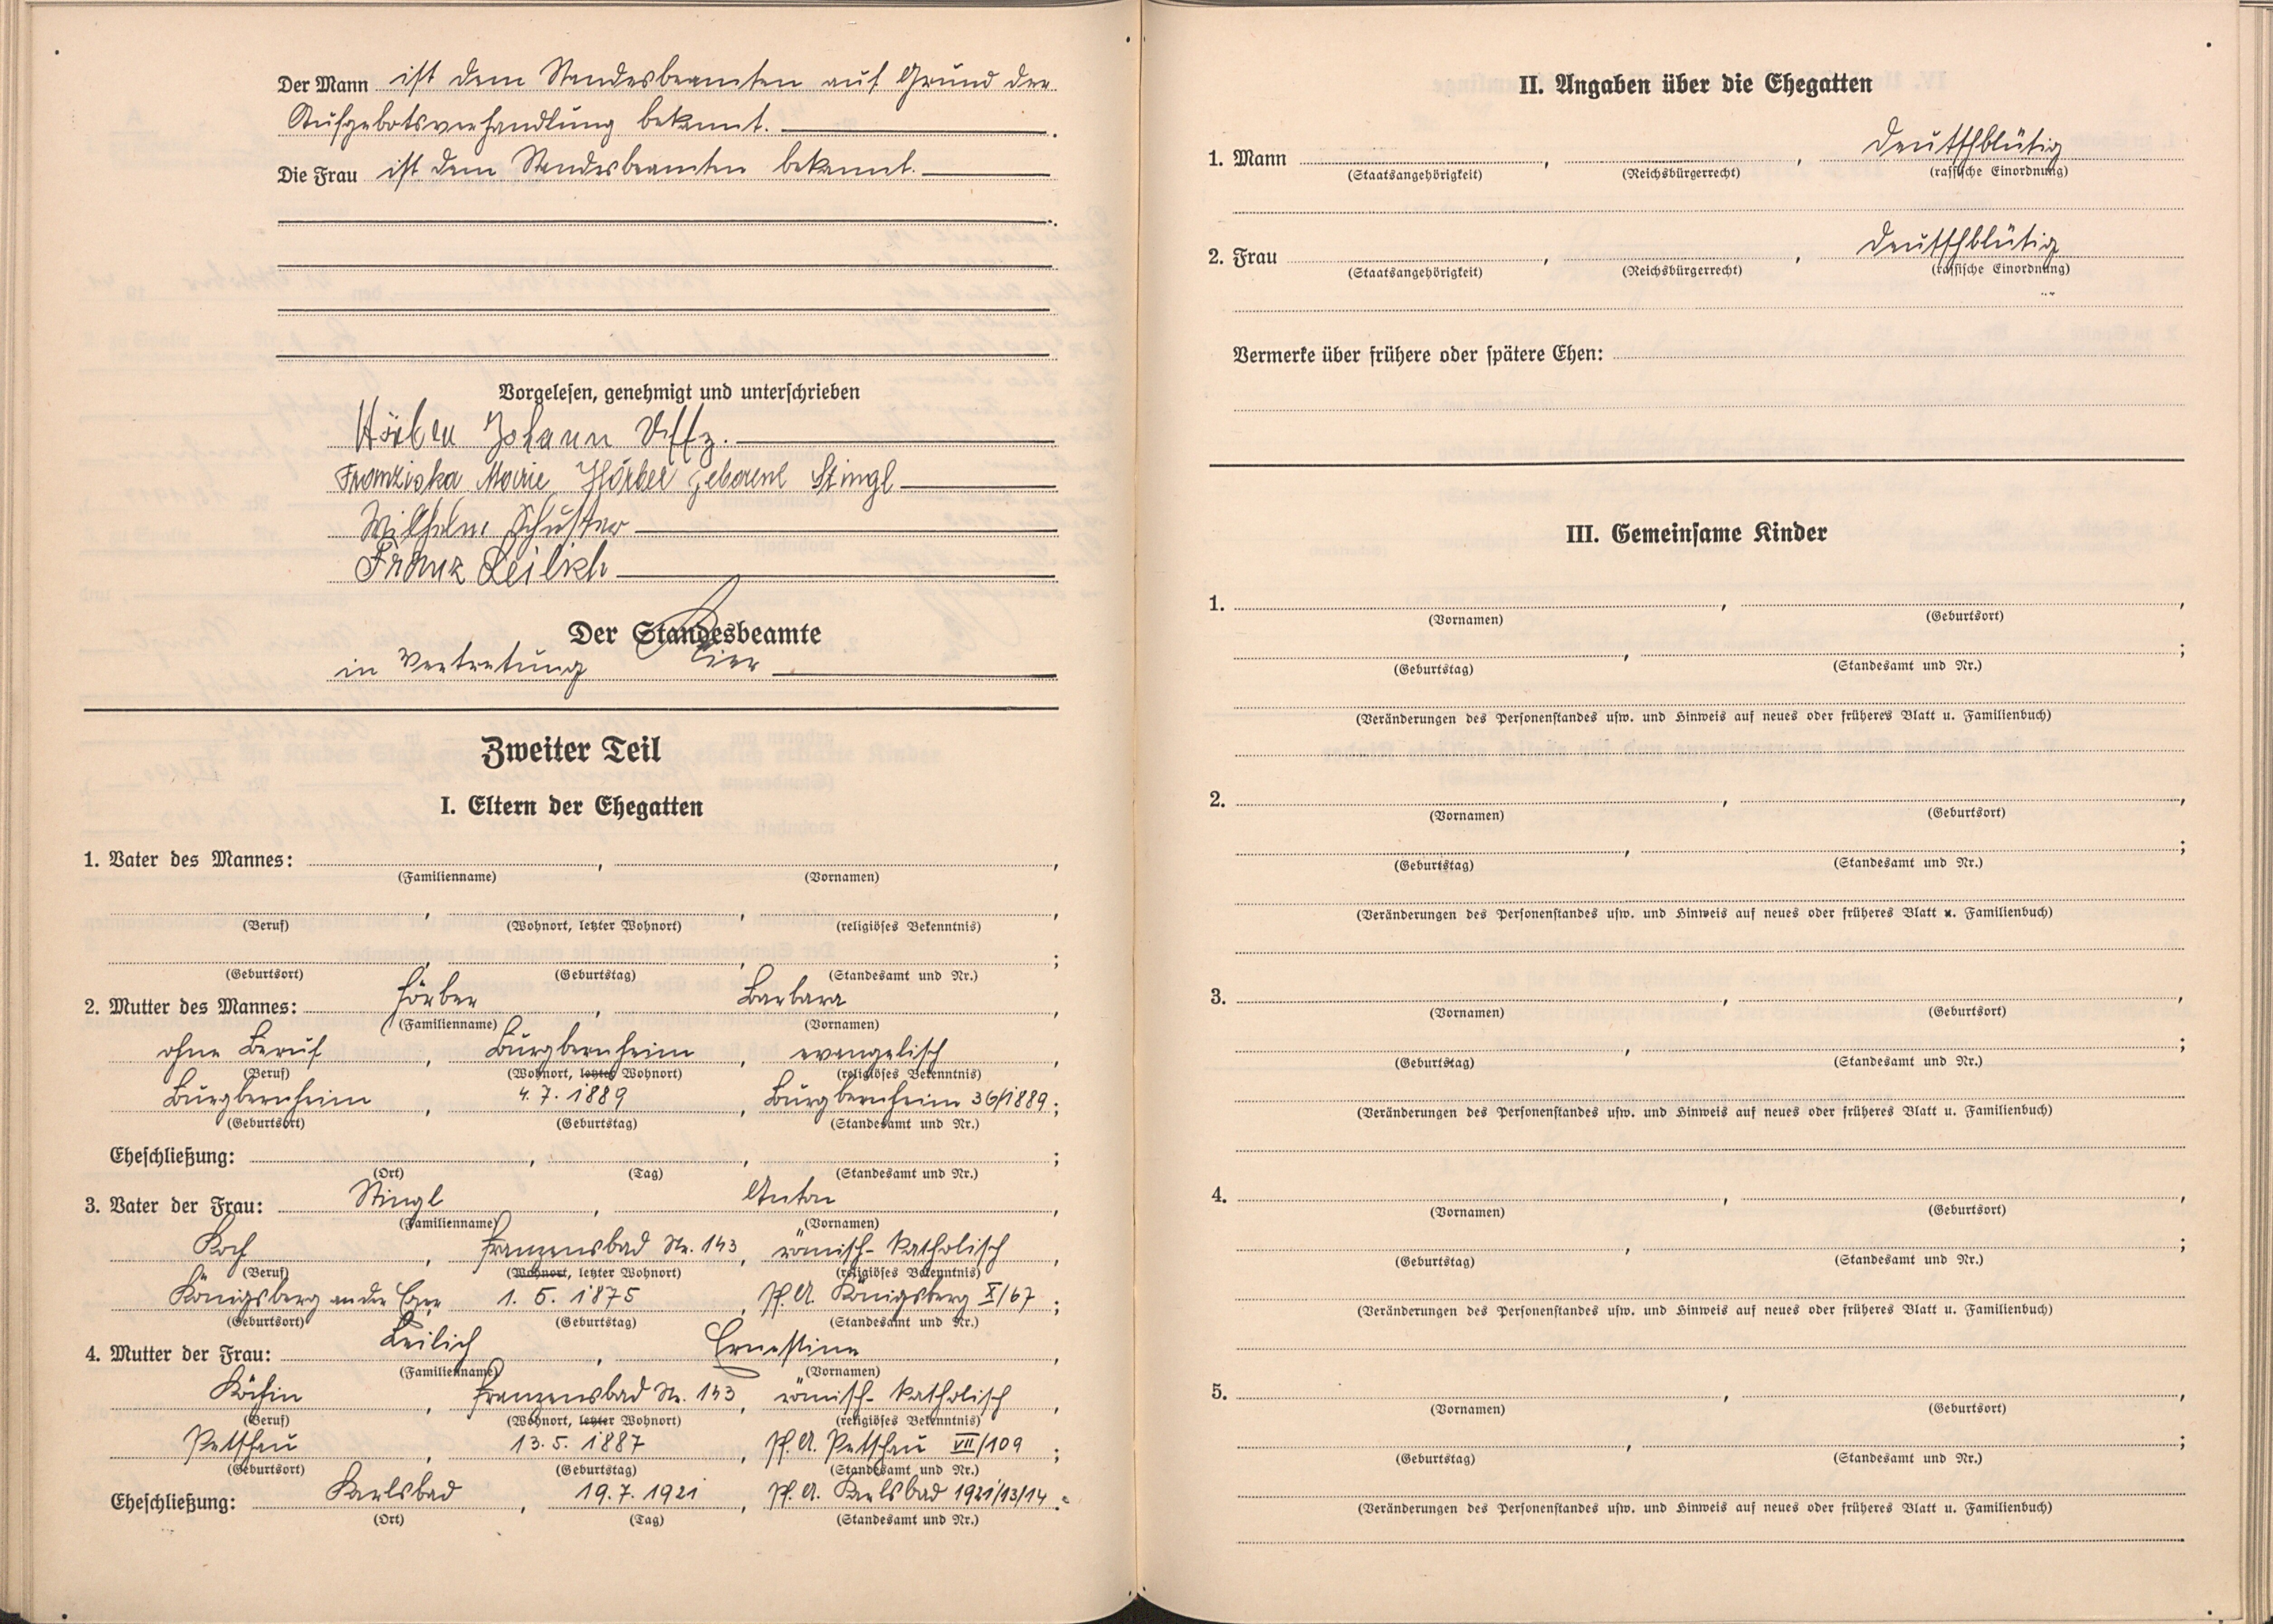 Der Mann ist dem Standesbeamten auf Grund der
Aufgebotsverhandlung bekannt.
Die Frau ist dem Standesbeamten bekannt.
Vorgelesen, genehmigt und unterschrieben
Hörber Johann Uffz.
Franziska Marie Hörber geborene Stingl
Wilhelm Schuster
Franz Leilich
Der Standesbeamte
in Vertretung
Zweiter Teil
I. Eltern der Ehegatten
1. Vater des Mannes: , ,
(Familienname) (Vornamen)
(Beruf) (Wohnort, letzter Wohnort) (religiöses Bekenntnis)
(Geburtsort) (Geburtstag) (Standesamt und Nr.)
2. Mutter des Mannes: Hörber , Barbara ,
(Familienname) (Vornamen)
ohne Beruf , Burgbernheim , evangelisch ,
(Beruf) (Wohnort, letzter Wohnort) (religiöses Bekenntnis)
Burgbernheim , 4. 7. 1889 , Burgbernheim 36/1889 ;
(Geburtsort) (Geburtstag) (Standesamt und Nr.)
Eheschließung: , , ;
(Ort) (Tag) (Standesamt und Nr.)
3. Vater der Frau: Stingl , Anton ,
(Familienname) (Vornamen)
Koch , Franzensbad Nr. 143 , römisch-katholisch ,
(Beruf) (Wohnort, letzter Wohnort) (religiöses Bekenntnis)
Königsberg an der Eger 1. 5. 1875 , Pf. A. Königsberg X/67 ;
(Geburtsort) (Geburtstag) (Standesamt und Nr.)
4. Mutter der Frau: Leilich , Ernestine ,
(Familienname) (Vornamen)
Köchin , Franzensbad Nr. 143 , römisch-katholisch ,
(Beruf) (Wohnort, letzter Wohnort) (religiöses Bekenntnis)
Petschau , 13. 5. 1887 , Pf. A. Petschau VII/109 ;
(Geburtsort) (Geburtstag) (Standesamt und Nr.)
Eheschließung: Karlsbad , 19. 7. 1921 , Pf. A. Karlsbad 1921/13/14 .
(Ort) (Tag) (Standesamt und Nr.)
II. Angaben über die Ehegatten
1. Mann , , deutschblütig
(Staatsangehörigkeit) (Reichsbürgerrecht) (rassische Einordnung)
2. Frau , , deutschblütig
(Staatsangehörigkeit) (Reichsbürgerrecht) (rassische Einordnung)
Vermerke über frühere oder spätere Ehen:
III. Gemeinsame Kinder
1. , ,
(Vornamen) (Geburtsort)
(Geburtstag) (Standesamt und Nr.)
(Veränderungen des Personenstandes usw. und Hinweis auf neues oder früheres Blatt u. Familienbuch)
2. , ,
(Vornamen) (Geburtsort)
(Geburtstag) (Standesamt und Nr.)
(Veränderungen des Personenstandes usw. und Hinweis auf neues oder früheres Blatt u. Familienbuch)
3. , ,
(Vornamen) (Geburtsort)
(Geburtstag) (Standesamt und Nr.)
(Veränderungen des Personenstandes usw. und Hinweis auf neues oder früheres Blatt u. Familienbuch)
4. , ,
(Vornamen) (Geburtsort)
(Geburtstag) (Standesamt und Nr.)
(Veränderungen des Personenstandes usw. und Hinweis auf neues oder früheres Blatt u. Familienbuch)
5. , ,
(Vornamen) (Geburtsort)
(Geburtstag) (Standesamt und Nr.)
(Veränderungen des Personenstandes usw. und Hinweis auf neues oder früheres Blatt u. Familienbuch)